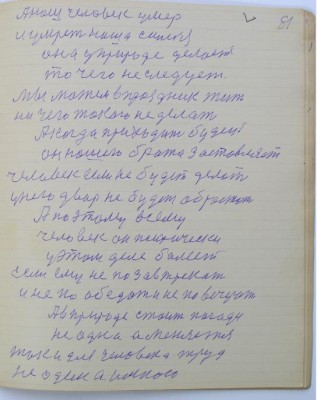 51
А наш человек умер
и умрет наша самоя
она у природе делает
то чего не следует.
Мы можем в праздник жит
ни чего такого не делат
А когда приходит будей
он нашего брата заставляет
человек если не будет делат
у него двар не будет обработ
А поэтому всему
человек он психически
у этом деле болеет
если ему не позавтрекат
и не по обедат и не повечерят
Ав природе стоит погода
не одна а меняется
так и для человека труд
не один а много